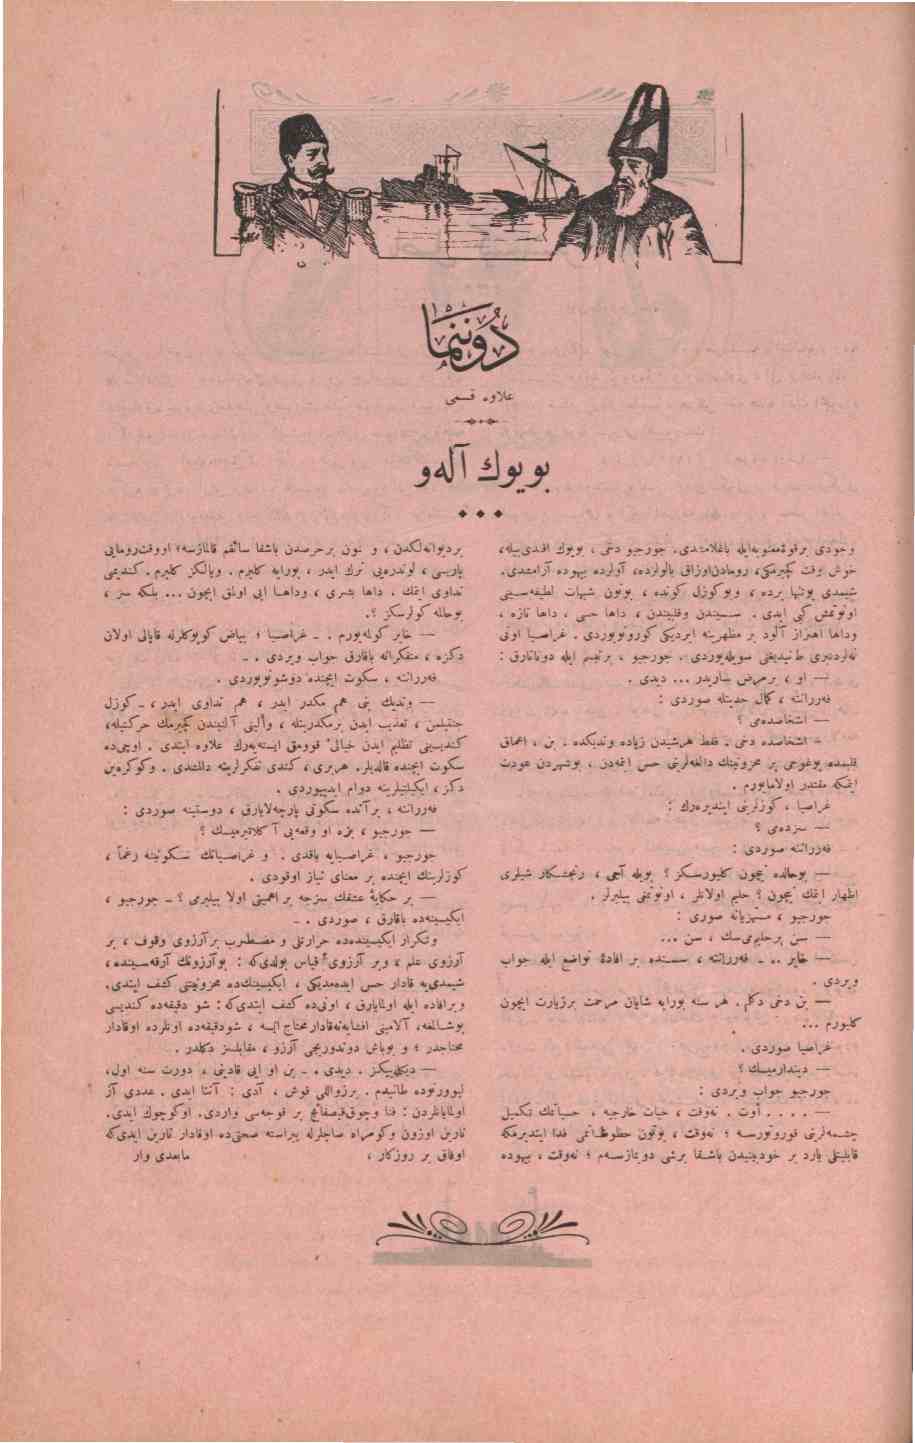 دوننما
علاوه قسمی
بويوك آلەو
وجودی برقوۀ معنويه‌ايله باغلامشدی. جورجيو دخی ، بويوك افندی‌يله،
خوش بر وقت كچيرمكی، رومادن اوزاق بالولرده، آولرده بيهوده آرامشدی.
شيمدی بوتنها يرده ، وبوكوزل كونده ، بوتون شبهات لطيفه‌سينی
اونوتمش كبی ايدی . سسيندن وقلبيندن ، داها حسی ، داها تازه ،
وداها اهتزاز آلود بر مظهريته ايرديكی كورونويوردی . غراصيا اونی
نه‌لردنبری طانيديغنی سويله‌يوردی . جورجيو ، برتبسم ايله دوناقارق :
— او ، برمرض ساريدر ... ديدی .
فه‌ررانته ، كمال جديتله صوردی :
— اشخاصده‌می ؟
— اشخاصده دخی . فقط هرشيدن زياده ونديكده . بن ، اعماق
قلبمده بوغوجی بر محزونيتك دالغه‌لرينی حس ايتمه‌دن ، بوشهردن عودت
ايتمكه مقتدر اولامايورم .
غراصيا ، كوزلرينی اينديره‌رك :
— سزده‌می ؟
فه‌ررانته صوردی :
— بوحالده نيچون كليورسكز ؟ بويله آجی ، رنجشكار شيلری
اظهار ايتمك نيچون ؟ حليم اولانلر ، اونوتمغی بيليرلر .
جورجيو ، مستهزيانه صوردی :
— سن برحليم‌می‌سك ، سن ...
— خاير .. ـ فه‌ررانته ، سسنده بر افادۀ تواضع ايله جواب
ويردی .
— بن دخی دكلم . هر سنه بورايه شايان مرحمت برزيارت ايچون
كليورم ...
غراصيا صوردی .
— ديندارميسك ؟
جورجيو جواب ويردی :
— .... أوت . نه‌وقت ، حيات خارجيه ، حسياتك تكميل
چشمه‌لرينی قوروتورسه ؛ نه‌وقت ، بوتون حظوظاتمی فدا ايتديرمكه
قابليتلی بارد بر خودبينيدن باشقا برشی دويمازسه‌م ؛ نه‌وقت ، بيهوده
برديوانه‌لكدن ، و نون برحرصدن باشقا سائقم قالمازسه؛ اووقت‌رومايی
پاريسی ، لوندره‌يی ترك ايدر ، بورايه كليرم . ويالكز كليرم . كنديمی
تداوی ايتمك ، داها بشری ، وداها ايی اولمق ايچون ... بلكه سز ،
بوحاله كولرسكز ؟.
— خاير كوله‌يورم . ـ غراصيا ؛ بياض كوپوكلرله قاپالی اولان
دكزه ، متفكرانه باقارق جواب ويردی . ـ
فه‌ررانته ، سكوت ايچنده دوشونويوردی .
— ونديك بنی هم مكدر ايدر ، هم تداوی ايدر ، ـ كوزل
جنتيلمن ، تعذيب ايدن برمكدريتله ، وألينی آلنيندن كچيرمك حركتيله،
كنديسينی تظليم ايدن خيالی قوومق ايسته‌يه‌رك علاوه ايتدی . اوچی‌ده
سكوت ايچنده قالديلر. هربری، كندی تفكرلرينه دالمشدی . وكوكره‌ين
دكز ، ايكيلتيلرينه دوام ايدييوردی .
فه‌ررانته ، برآنده سكوتی پارچه‌لايارق ، دوستينه صوردی :
— جورجيو ، بزه او وقعه‌يی آكلاتيرميسك ؟
جورجيو ، غراصيايه باقدی . و غراصيانك سكوتينه رغماً ،
كوزلرينك ايچنده بر معنای نياز اوقودی .
— بر حكايۀ عشقك سزجه بر اهميتی اولا بيليرمی ؟ ـ جورجيو ،
ايكيسينه‌ده باقارق ، صوردی . ـ
وتكرار ايكيسينده‌ده حرارتلی و مضطرب برآرزوی وقوف ، بر
آرزوی علم ، وبر آرزوی قياس بولدی‌كه : بوآرزونك آرقه‌سينده،
شيمدی‌يه قادار حس ايده‌مديكی ، ايكيسينك‌ده محزونيتنی كشف ايتدی.
وبرافاده ايله اولمايارق ، اونی‌ده كشف ايتدی‌كه : شو دقيقه‌ده كنديسی
بوشالمغه، آلامينی افشايه‌نه‌قادار محتاج ايسه ، شودقيقه‌ده اونلرده اوقادار
محتاجدر ؛ و بوباش دوندوريجی آرزو ، مقابلسز دكلدر .
— ديكله‌ييكز . ديدی . ـ بن او ايی قادينی ، دورت سنه اول،
ليوورنوده طانيدم . برزواللی قوش ، آدی : آننا ايدی . عددی آز
اولمايانلردن : فنا وچوق‌قيصقانج بر قوجه‌سی واردی. اوكوچوك ايدی.
نارين اوزون وكومراه صاچلرله پيراسته صحتی‌ده اوقادار نارين ايدی‌كه
اوفاق بر روزكار ،
مابعدی وار